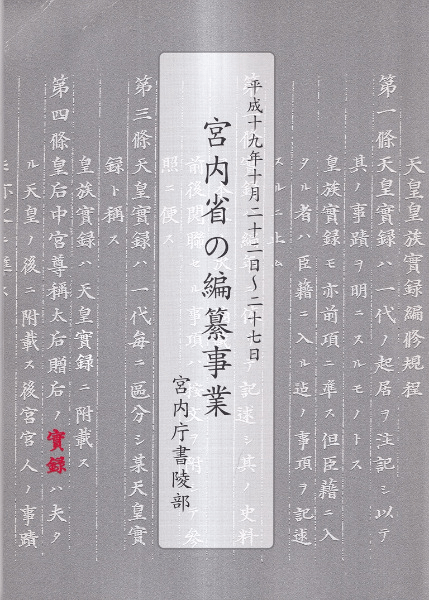 平成十九年十月二十二日〜二十七日
宮内省の編纂事業
宮内庁書陵部
天皇皇族實録編脩規程
第一條天皇實録ハ一代ノ起居ヲ注記シ以テ
其ノ事蹟ヲ明ニスルモノトス
皇族實録モ亦前項ニ準ス但臣籍ニ入
タル者ハ臣籍ニ入ル迠ノ事項ヲ記述
スルニ止ム
記述シ其ノ史料
前後関聯セル事項
照ニ便ス
第三條天皇實録ハ一代毎ニ區分シ某天皇實
録ト稱ス
皇族實録ハ天皇實録ニ附載ス
第四條皇后中宮尊稱太后贈后ノ實録ハ夫タ
ル天皇ノ後ニ附載ス後宮官人ノ事蹟